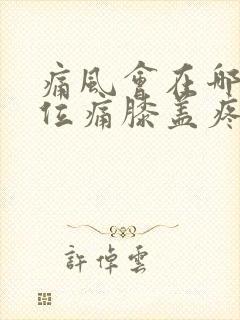 痛風會在哪
位痛膝盖疼
許倬雲